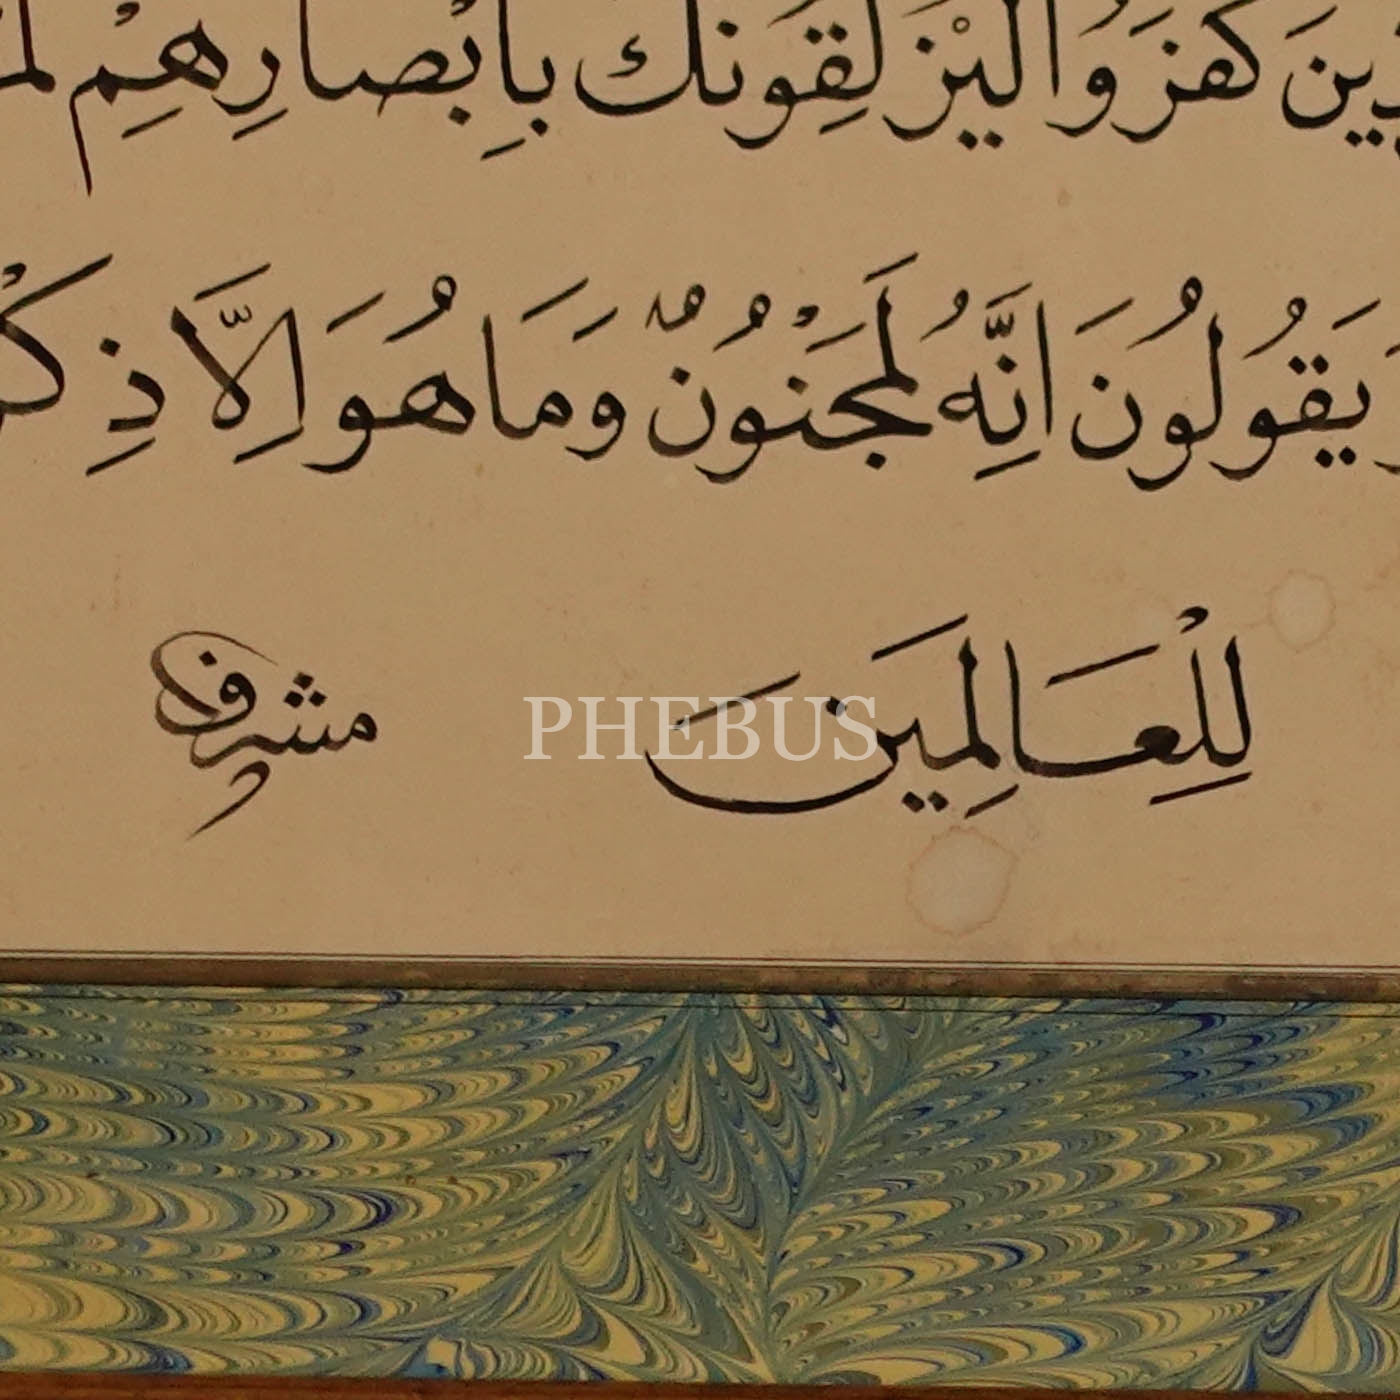 ين كَفَرُوا لَيُزْلِقُونَكَ بِاَبْصَارِهِمْ لَمَّا
يَقُولُونَ اِنَّهُ لَمَجْنُونٌ وَمَا هُوَ اِلَّا ذِكْر
لِلْعَالَمِينَ
مشرف
PHEBUS